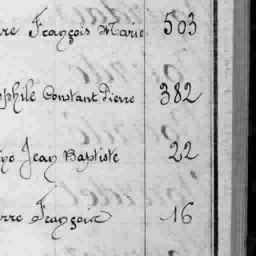 rre François Marie 503
ophile Constant Pierre 382
Jean Baptiste 22
erre Françoise 16